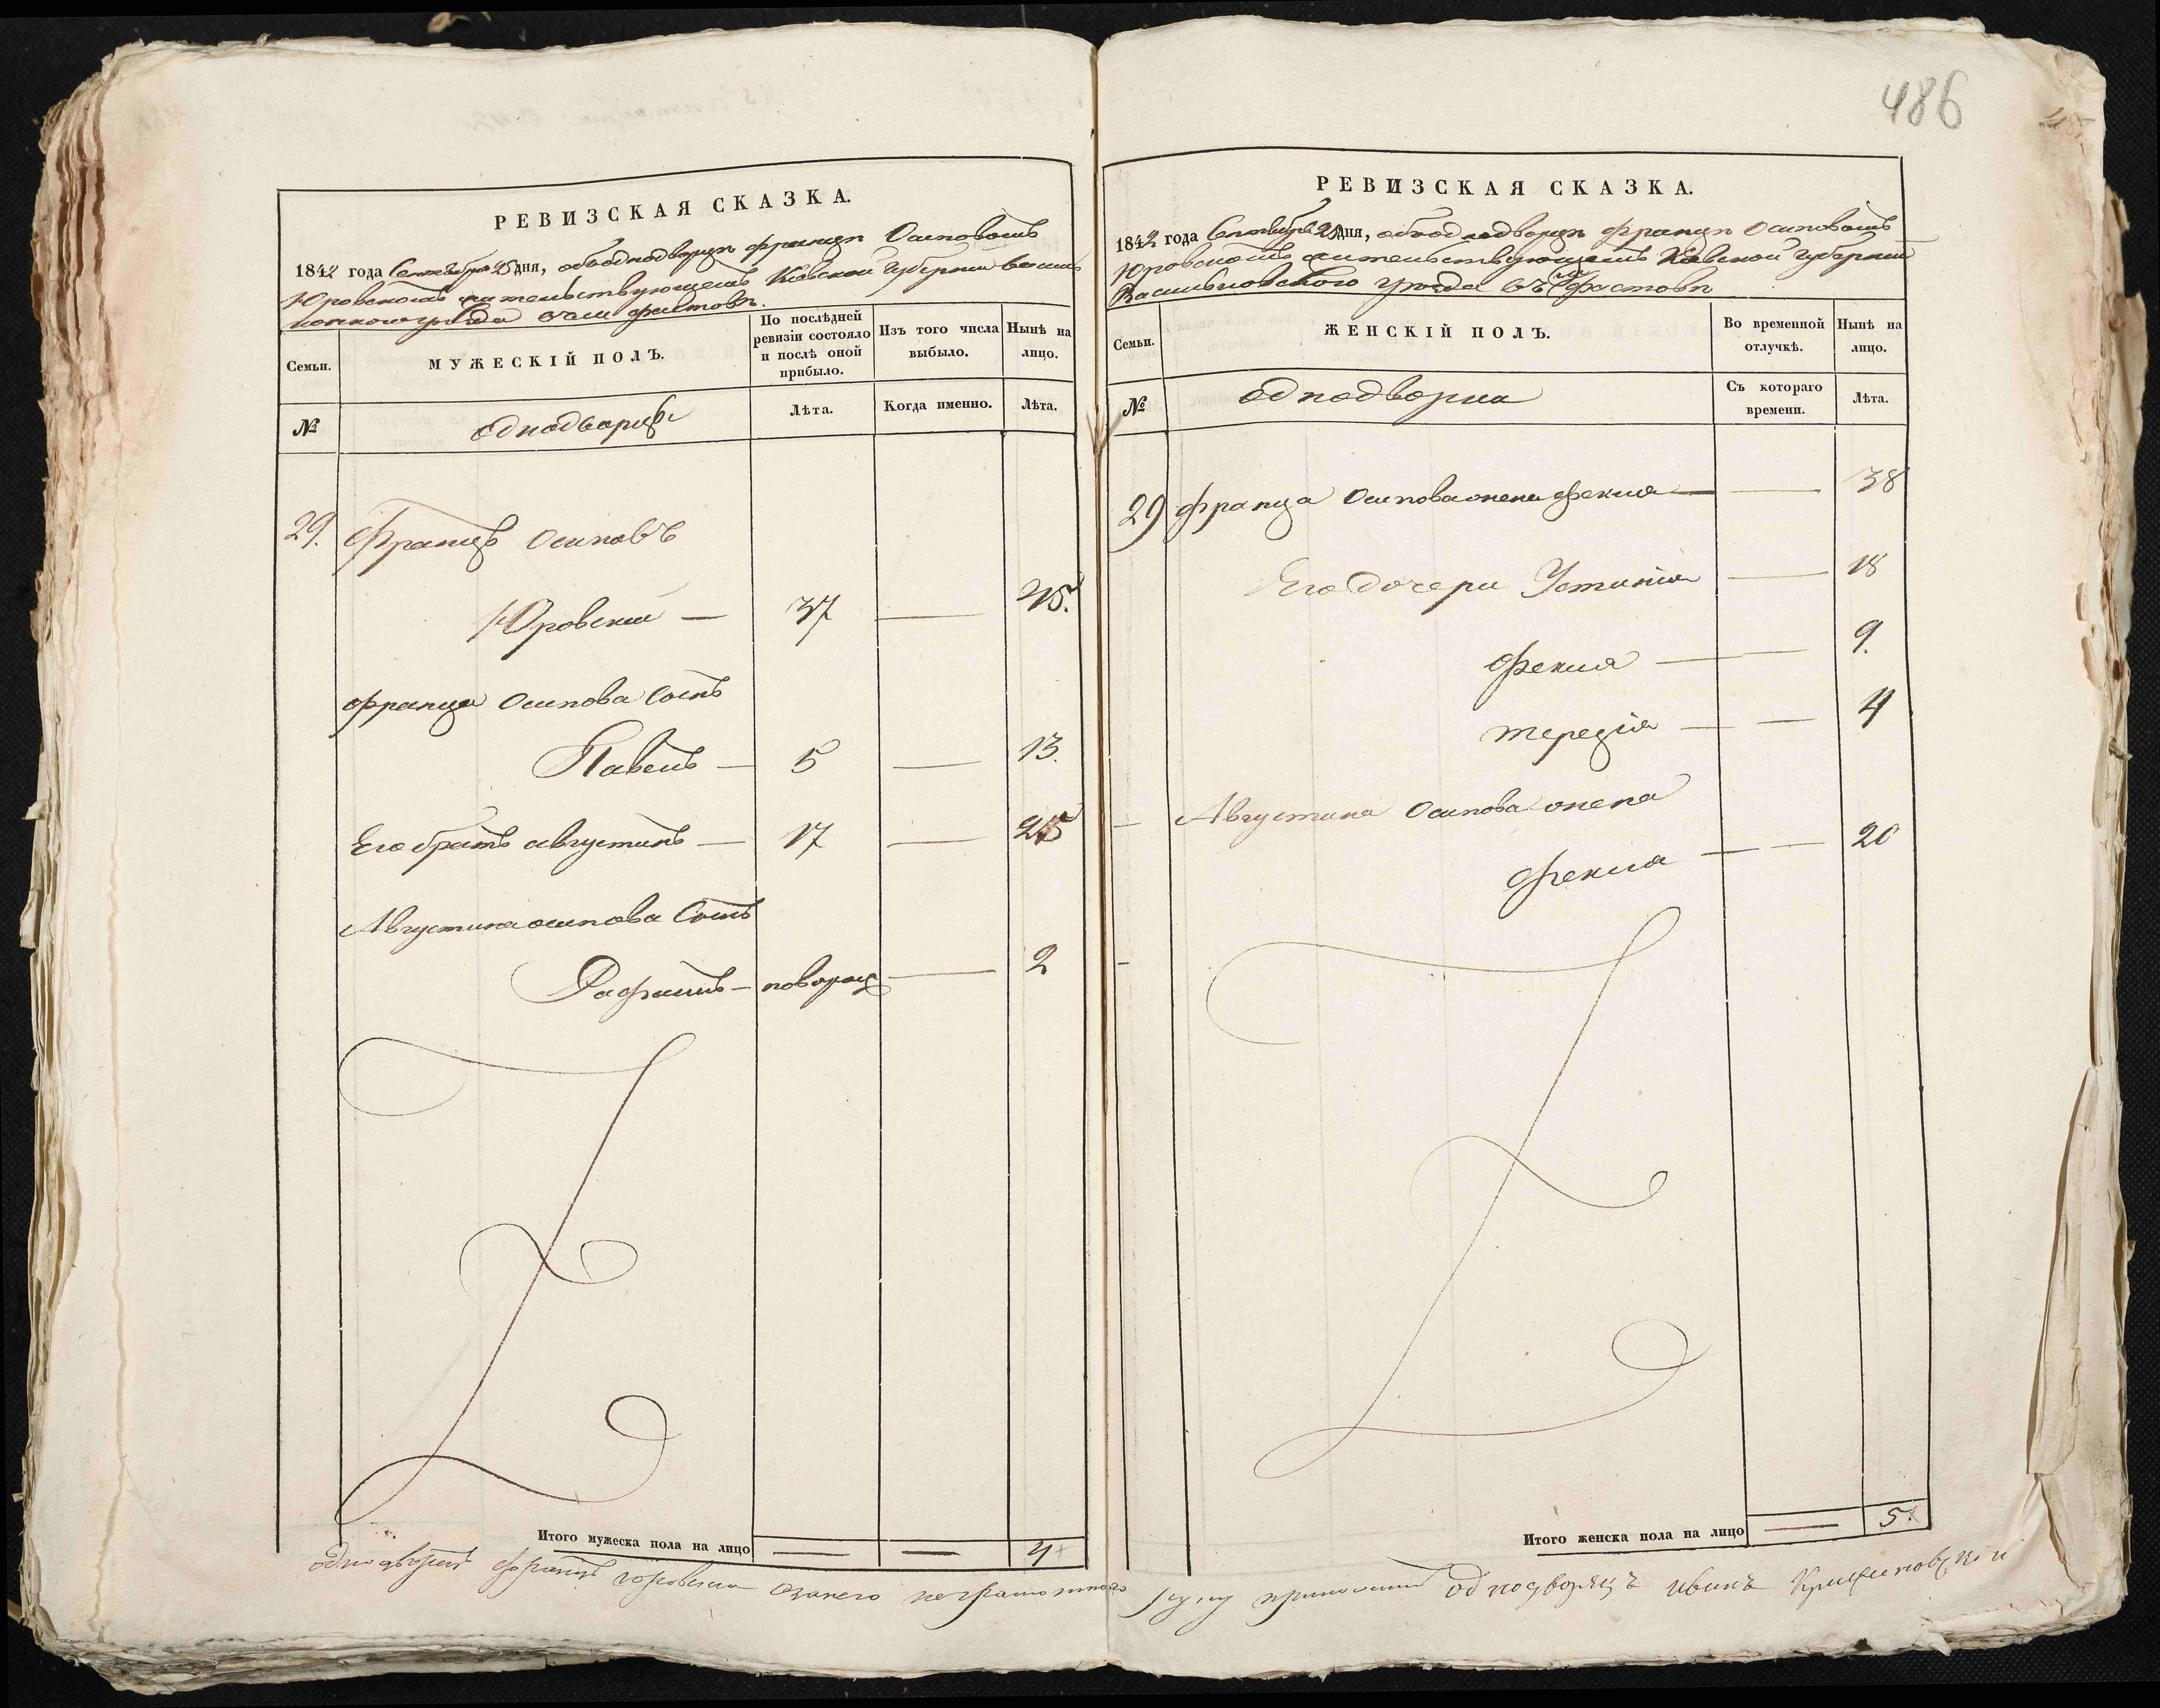 486
РЕВИЗСКАЯ СКАЗКА.
1842 года Сентября 25 дня, объ однодворцѣ Францѣ Осиповомъ
Юровскомъ жительствующемъ Кіевской Губерніи Василь
ковскаго уѣзда въ м. Фастовѣ.
Семьи.
МУЖЕСКІЙ ПОЛЪ.
По послѣдней ревизіи состояло и послѣ оной прибыло.
Изъ того числа выбыло.
Нынѣ на лицо.
№
Однодворцы
Лѣта.
Когда именно.
Лѣта.
29. Францъ Осиповъ
Юровскій — 37 — 45.
Франца Осипова Сынъ
Павелъ — 5 — 13.
Его братъ Августинъ — 17 — 25
Августина Осипова Сынъ
Рафаилъ — новорож — 2
Итого мужеска пола на лицо — — 4
РЕВИЗСКАЯ СКАЗКА.
1842 года Сентября 25 дня, объ однодворцѣ Францѣ Осиповомъ
Юровскомъ жительствующемъ Кіевской Губерніи
Васильковского уѣзда въ м. Фастовѣ
Семьи.
ЖЕНСКІЙ ПОЛЪ.
Во временной отлучкѣ.
Нынѣ на лицо.
№
Однодворки
Съ котораго времени.
Лѣта.
29 Франца Осипова жена Фекла — — 38
Его дочери Устинія — 18
Фекла — — 9.
Терезія — — 4
Августина Осипова жена
Фекла — — 20
Итого женска пола на лицо — 5
однодворецъ Францъ Юровский а занего неграмотного
руку приложилъ однодворецъ Иванъ